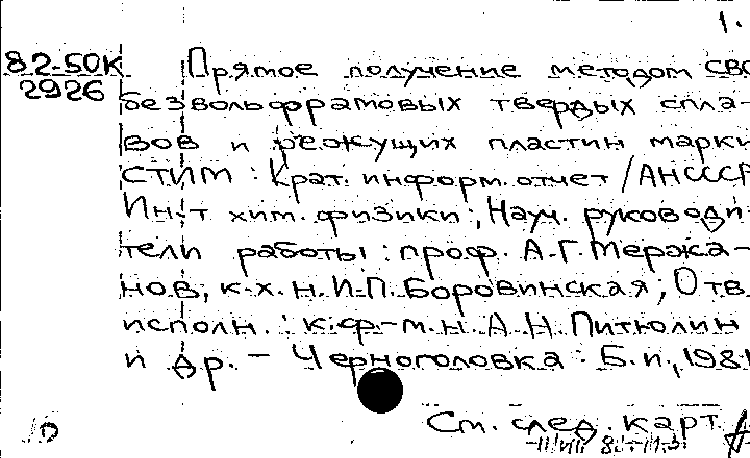 1.
82-50К Прямое получение методом СВС
2926 безвольфрамовых твердых спла-
вов и режущих пластин марки
СТИМ : Крат. информ. отчет / АНСССР
Ин-т хим. физики; Науч. руководи
тели работы : проф. А.Г. Мержа-
нов, к.х.н. И.П. Боровинская; Отв
исполн. : к.ф-м.н. А.Н. Питюлин
и др. - Черноголовка : Б.и., 1981
См. след. карт.